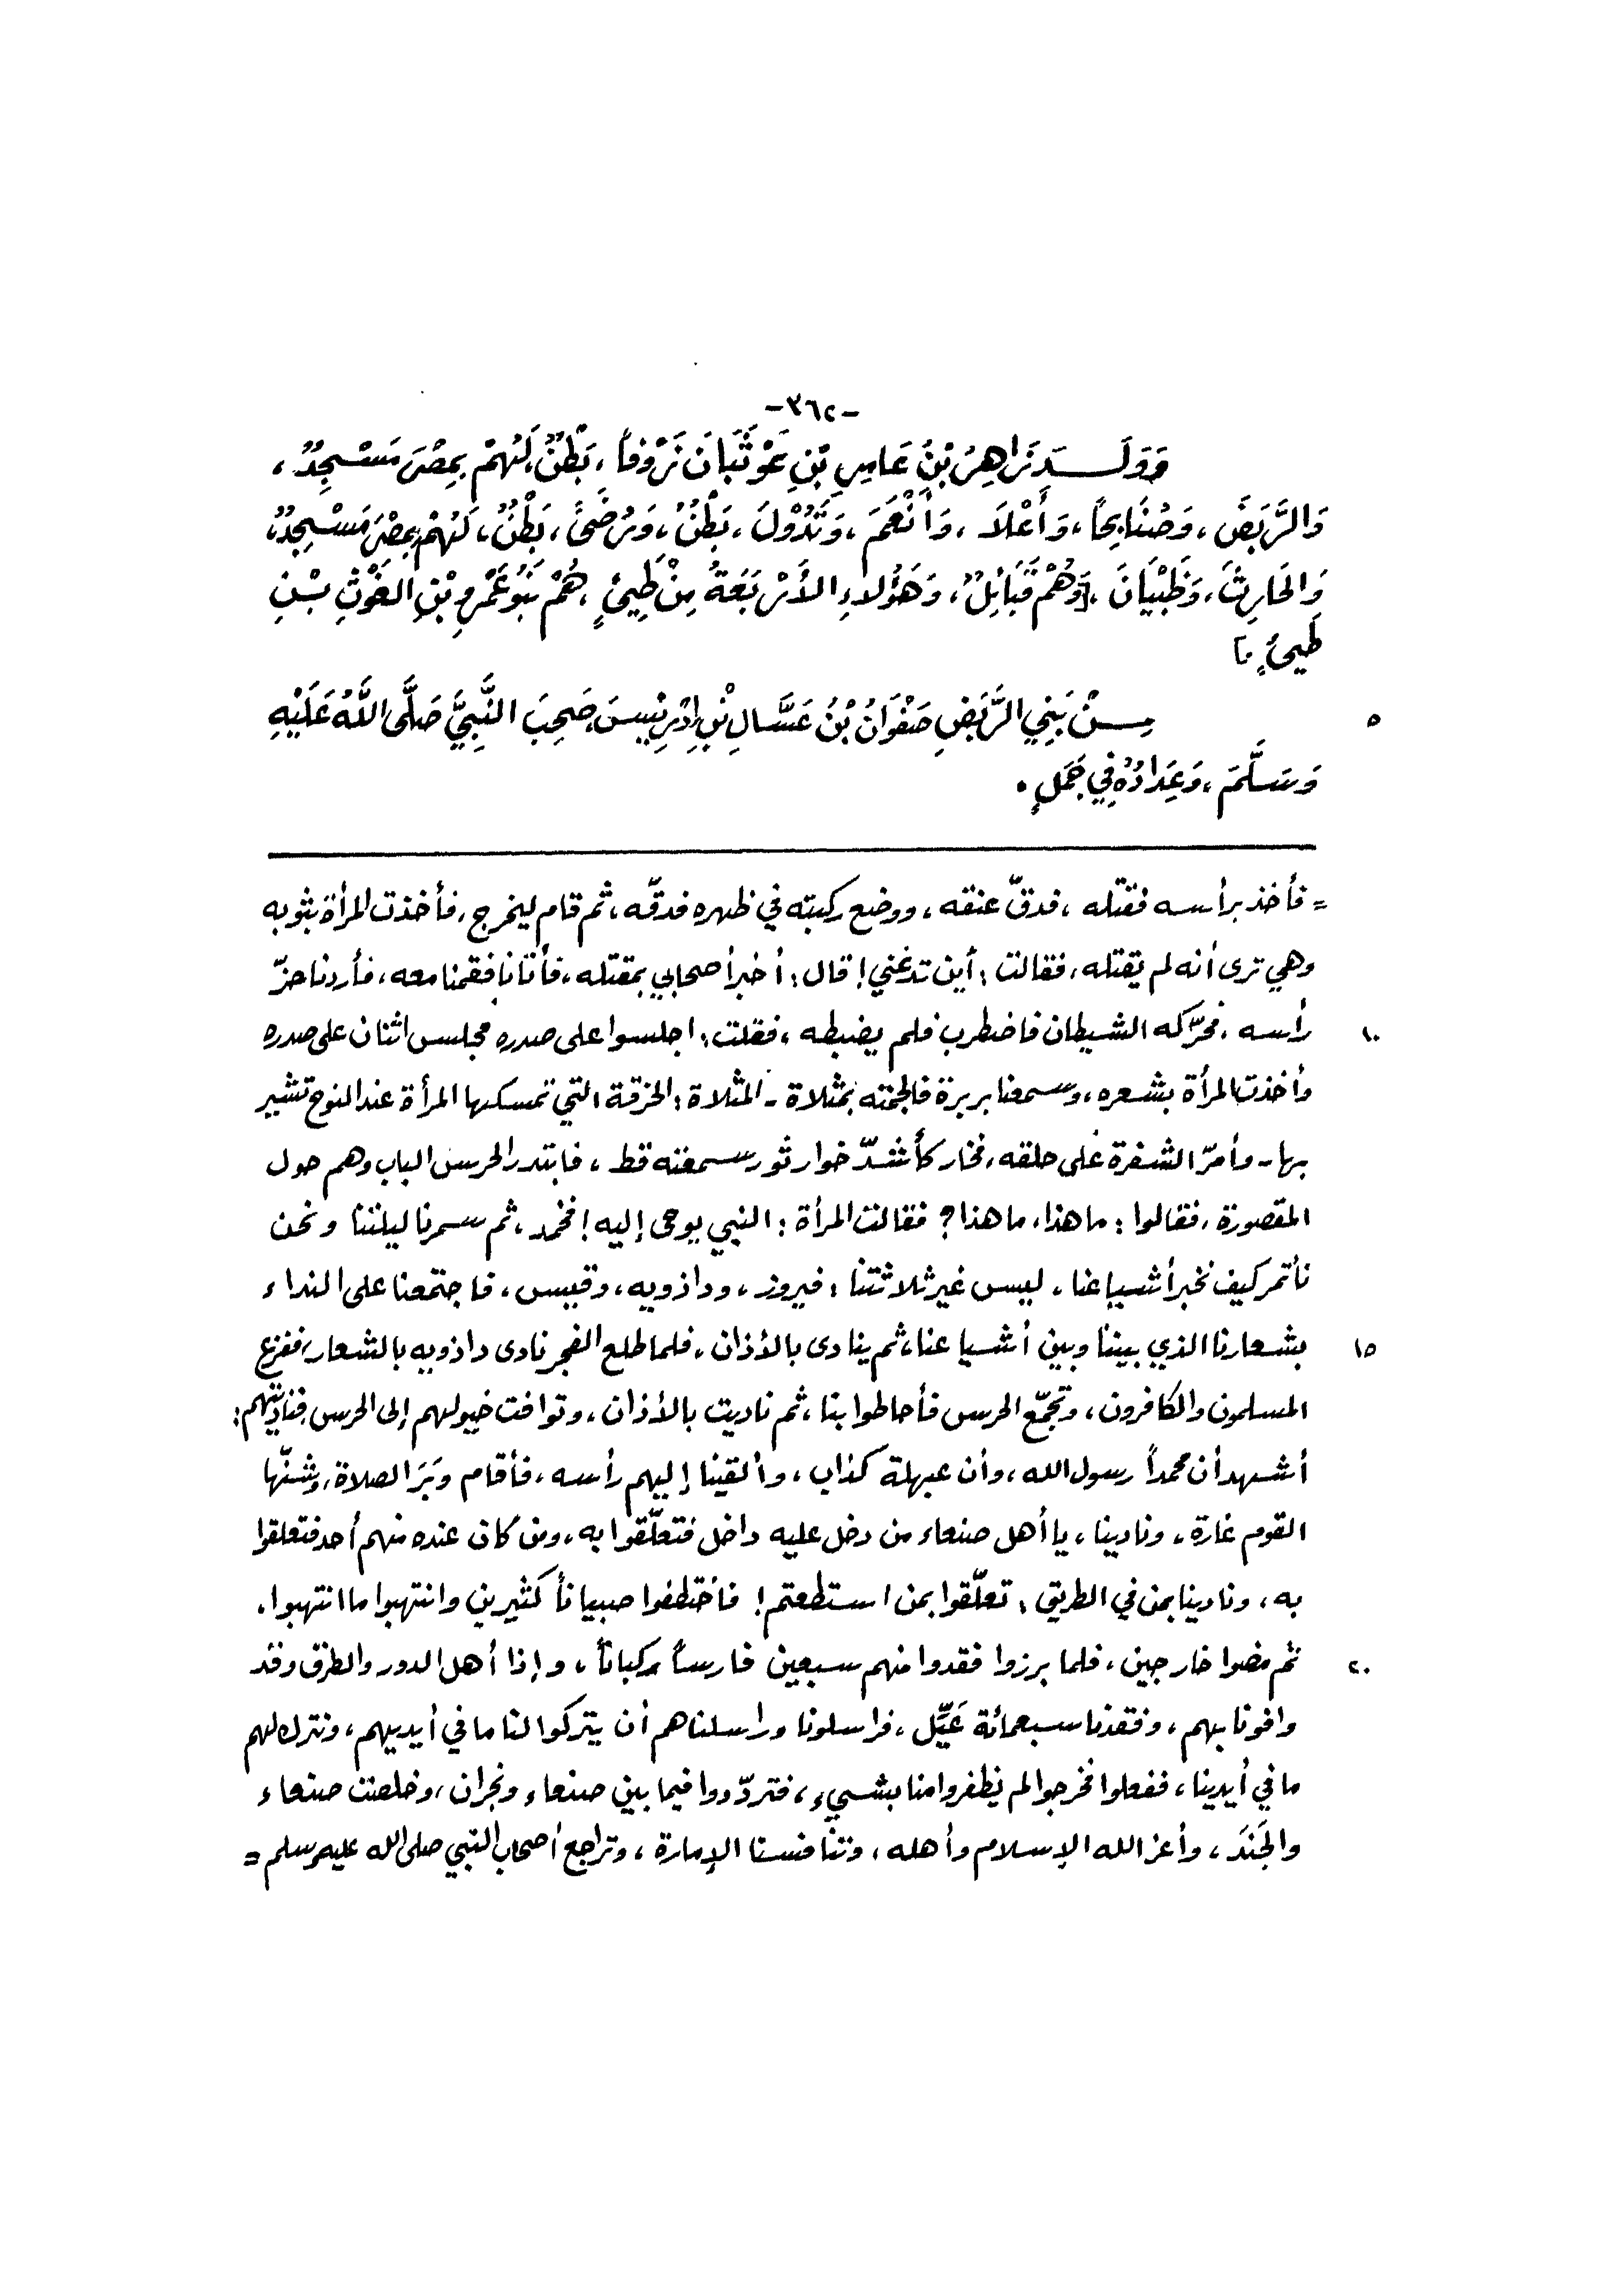 -٣٦٢-
وَوَلَــدَ زَاهِرُ بْنُ عَامِرِ بْنِ عَوْثَبَانَ زَوْفاً، بَطْنٌ، لَهُمْ بِمِصْرَ مَسْجِدٌ،
وَالرَّبَضَ، وَصُنَابِحاً، وَأَعْلَا، وَأَنْعَمَ، وَتَدُوْلَ، بَطْنٌ، وَرُضَىً، بَطْنٌ، لَهُمْ بِمِصْرَ مَسْجِدٌ،
وَالحَارِثَ، وَظَبْيَانَ. [وَهُمْ قَبَائِلُ، وَهَؤُلاءِ الأَرْبَعَةُ مِنْ طَيِئٍ، هُمْ بَنُو عَمْرِو بْنِ الغَوْثِ بْنِ
طَيِئٍ.]
٥ مِــنْ بَنِي الرَّبَضِ صَفْوَانُ بْنُ عَسَّالِ بْنِ إِدْرِيْسَ، صَحِبَ النَّبِيَّ صَلَّى اللَّهُ عَلَيْهِ
وَسَلَّمَ، وَعِدَادُهُ فِي جَمَلٍ.
= فأخذ برأسه فقتله، فدقّ عنقه، ووضع ركبته في ظهره فدقّه، ثم قام ليخرج، فأخذت المرأة بثوبه
وهي ترى أنه لم يقتله، فقالت: أين تدعني! قال: أخبر أصحابي بمقتله، فأتانا فقمنا معه، فأردنا حزّ
١٠ رأسه، فحرّكه الشيطان فاضطرب فلم يضبطه، فقلت: اجلسوا على صدره فجلس اثنان على صدره
وأخذت المرأة بشعره، وسمعنا بربرة فألجمته بمثلاة - المثلاة: الخرقة التي تمسكها المرأة عند النوح تشير
بها - وأمرّ الشفرة على حلقه، فخار كأشدّ خوار ثور سمعته قط، فابتدر الحرس الباب وهم حول
المقصورة، فقالوا: ما هذا، ما هذا؟ فقالت المرأة: النبي يوحى إليه! فخمد، ثم سمرنا ليلتنا ونحن
نأتمر كيف نخبر أشياعنا، ليس غير ثلاثتنا: فيروز، وداذويه، وقيس، فاجتمعنا على النداء
١٥ بشعارنا الذي بيننا وبين أشياعنا، ثم ينادى بالأذان، فلما طلع الفجر نادى داذويه بالشعار، ففزع
المسلمون والكافرون، وتجمّع الحرس فأحاطوا بنا، ثم ناديت بالأذان، وتوافت خيولهم إلى الحرس، فناديتهم:
أشهد أن محمداً رسول الله، وأن عبهلة كذاب، وألقينا إليهم رأسه، فأقام وَبَرَ الصلاة، وشنّها
القوم غارة، ونادينا، يا أهل صنعاء من دخل عليه داخل فتعلّقوا به، ومن كان عنده منهم أحد فتعلقوا
به، ونادينا بمن في الطريق: تعلّقوا بمن استطعتم! فاختطفوا صبياناً كثيرين وانتهبوا ما انتهبوا.
٢٠ ثم مضوا خارجين، فلما برزوا فقدوا منهم سبعين فارساً ركباناً، وإذا أهل الدور والطرق وقد
وافونا بهم، وفقدنا سبعمائة عَيِّل، فراسلونا وراسلناهم أن يتركوا لنا ما في أيديهم، ونترك لهم
ما في أيدينا، ففعلوا فخرجوا لم يظفروا منا بشيء، فتردّدوا فيما بين صنعاء ونجران، وخلصت صنعاء
والجَنَدَ، وأعز الله الإسلام وأهله، وتنافسنا الإمارة، وتراجع أصحاب النبي صلى الله عليه وسلم =